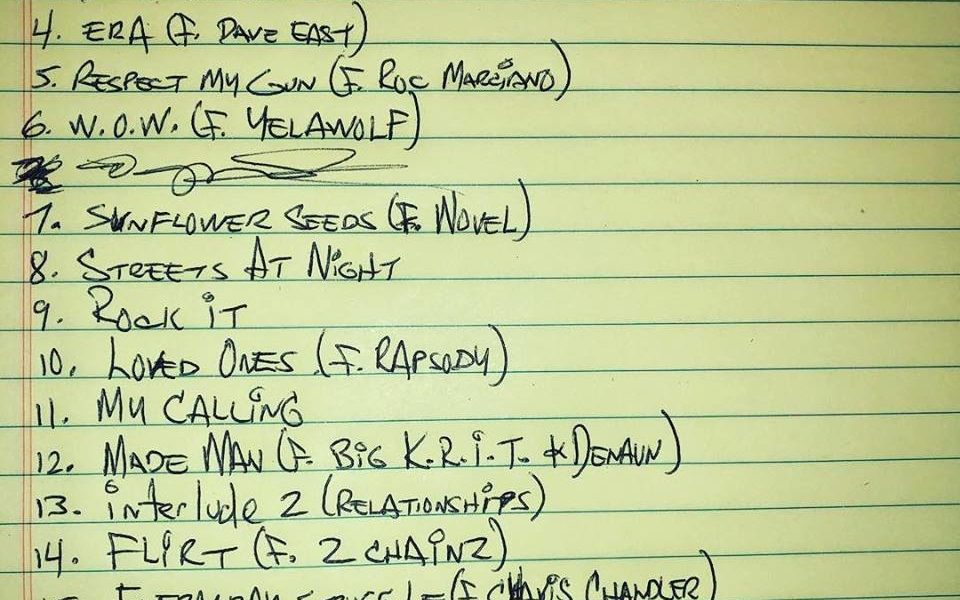 4. ERA (F. DAVE EAST)
5. RESPECT MY GUN (F. ROC MARCIANO)
6. W.O.W. (F. YELAWOLF)
7. SUNFLOWER SEEDS (F. NOVEL)
8. STREETS AT NiGHT
9. ROCK iT
10. LOVED ONES (F. RAPSODY)
11. MY CALLiNG
12. MADE MAN (F. BiG K.R.i.T. & DENAUN)
13. interlude 2 (RELATIONSHiPS)
14. FLiRT (F. 2 CHAiNZ)
(F. CHRiS CHANDLER)